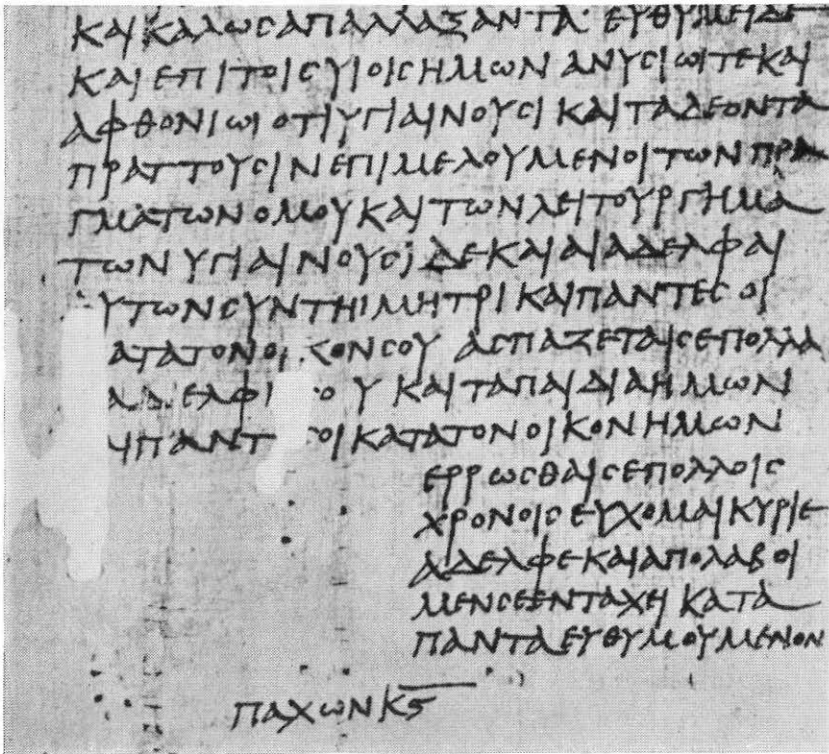 ΚΑΙ ΚΑΛΩϹ ΑΠΑΛΛΑΞΑΝΤΑ· ΕΥΘΥΜΕΙ ΔΕ
ΚΑΙ ΕΠΙ ΤΟΙϹ ΥΙΟΙϹ ΗΜΩΝ ΑΝΥϹΙΩΙ ΤΕ ΚΑΙ
ΑΦΘΟΝΙΩΙ ΟΤΙ ΥΓΙΑΙΝΟΥϹΙ ΚΑΙ ΤΑ ΔΕΟΝΤΑ
ΠΡΑΤΤΟΥϹΙΝ ΕΠΙΜΕΛΟΥΜΕΝΟΙ ΤΩΝ ΠΡΑ
ΓΜΑΤΩΝ ΟΜΟΥ ΚΑΙ ΤΩΝ ΛΕΙΤΟΥΡΓΗΜΑ
ΤΩΝ ΥΓΙΑΙΝΟΥϹΙ ΔΕ ΚΑΙ ΑΙ ΑΔΕΛΦΑΙ
ΥΤΩΝ ϹΥΝ ΤΗΙ ΜΗΤΡΙ ΚΑΙ ΠΑΝΤΕϹ ΟΙ
ΑΤΑ ΤΟΝ ΟΙΚΟΝ ϹΟΥ ΑϹΠΑΖΕΤΑΙ ϹΕ ΠΟΛΛΑ
ΑΔΕΛΦΗ ΟΥ ΚΑΙ ΤΑ ΠΑΙΔΙΑ ΗΜΩΝ
ΠΑΝΤ ΟΙ ΚΑΤΑ ΤΟΝ ΟΙΚΟΝ ΗΜΩΝ
ΕΡΡΩϹΘΑΙ ϹΕ ΠΟΛΛΟΙϹ
ΧΡΟΝΟΙϹ ΕΥΧΟΜΑΙ ΚΥΡΙΕ
ΑΔΕΛΦΕ ΚΑΙ ΑΠΟΛΑΒΟΙ
ΜΕΝ ϹΕ ΕΝ ΤΑΧΕΙ ΚΑΤΑ
ΠΑΝΤΑ ΕΥΘΥΜΟΥΜΕΝΟΝ
ΠΑΧΩΝ Κϛ